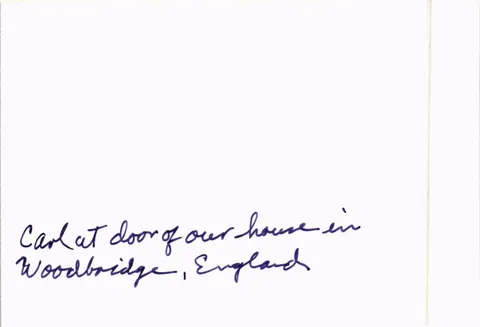 Carl at door of our house in
Woodbridge, England